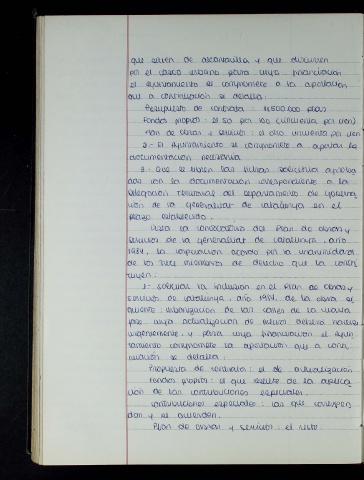 que sirven de alcantarilla y que discurren
por el casco urbano para cuya financiación
el Ayuntamiento se compromete a la aportación
que a continuación se detalla:
Presupuesto de contrata 4.500.000 ptas
Fondos propios: el 50 por 100 (cincuenta por cien)
Plan de obras y servicios: el otro cincuenta por cien
2.- El Ayuntamiento se compromete a aportar la
documentación necesaria.
3.- Que se libren las fichas solicitud aproba
das con la documentación correspondiente a la
Delegación Territorial del Departamento de Goberna
ción de la Generalitat de Catalunya en el
plazo establecido.
Vista la convocatoria del Plan de Obras y
Servicios de la Generalitat de Catalunya, año
1984, la corporación acordó por la unanimidad
de los trece miembros de derecho que la consti
tuyen:
1.- Solicitar la inclusión en el Plan de Obras y
Servicios de Catalunya, año 1984, de la obra si
guiente: urbanización de las calles de la
fase cuya actualización de precios deberá hacerse
urgentemente, y para cuya financiación el Ayun
tamiento compromete la aportación que a conti
nuación se detalla:
Propuesta de contrata: el de actualización
Fondos propios: el que resulte de la aplica
ción de las contribuciones especiales.
Contribuciones especiales: las que correspon
dan y se acuerden.
Plan de obras y servicios: el resto.